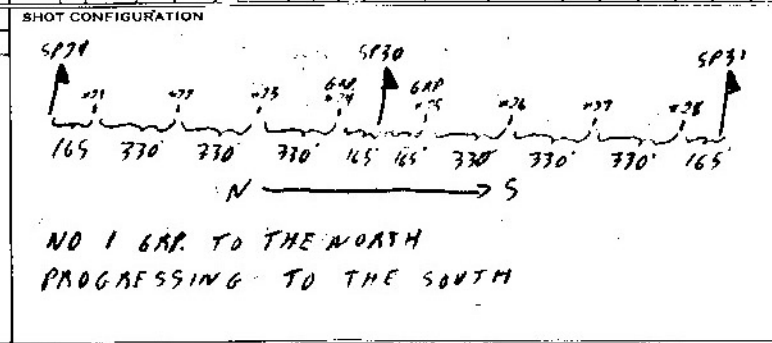 SHOT CONFIGURATION
SP29 SP30 SP31
GRP GRP
#21 #22 #23 #24 #25 #26 #27 #28
165 330' 330' 330' 165' 165' 330' 330' 330' 165'
N S
NO 1 GRP. TO THE NORTH
PROGRESSING TO THE SOUTH